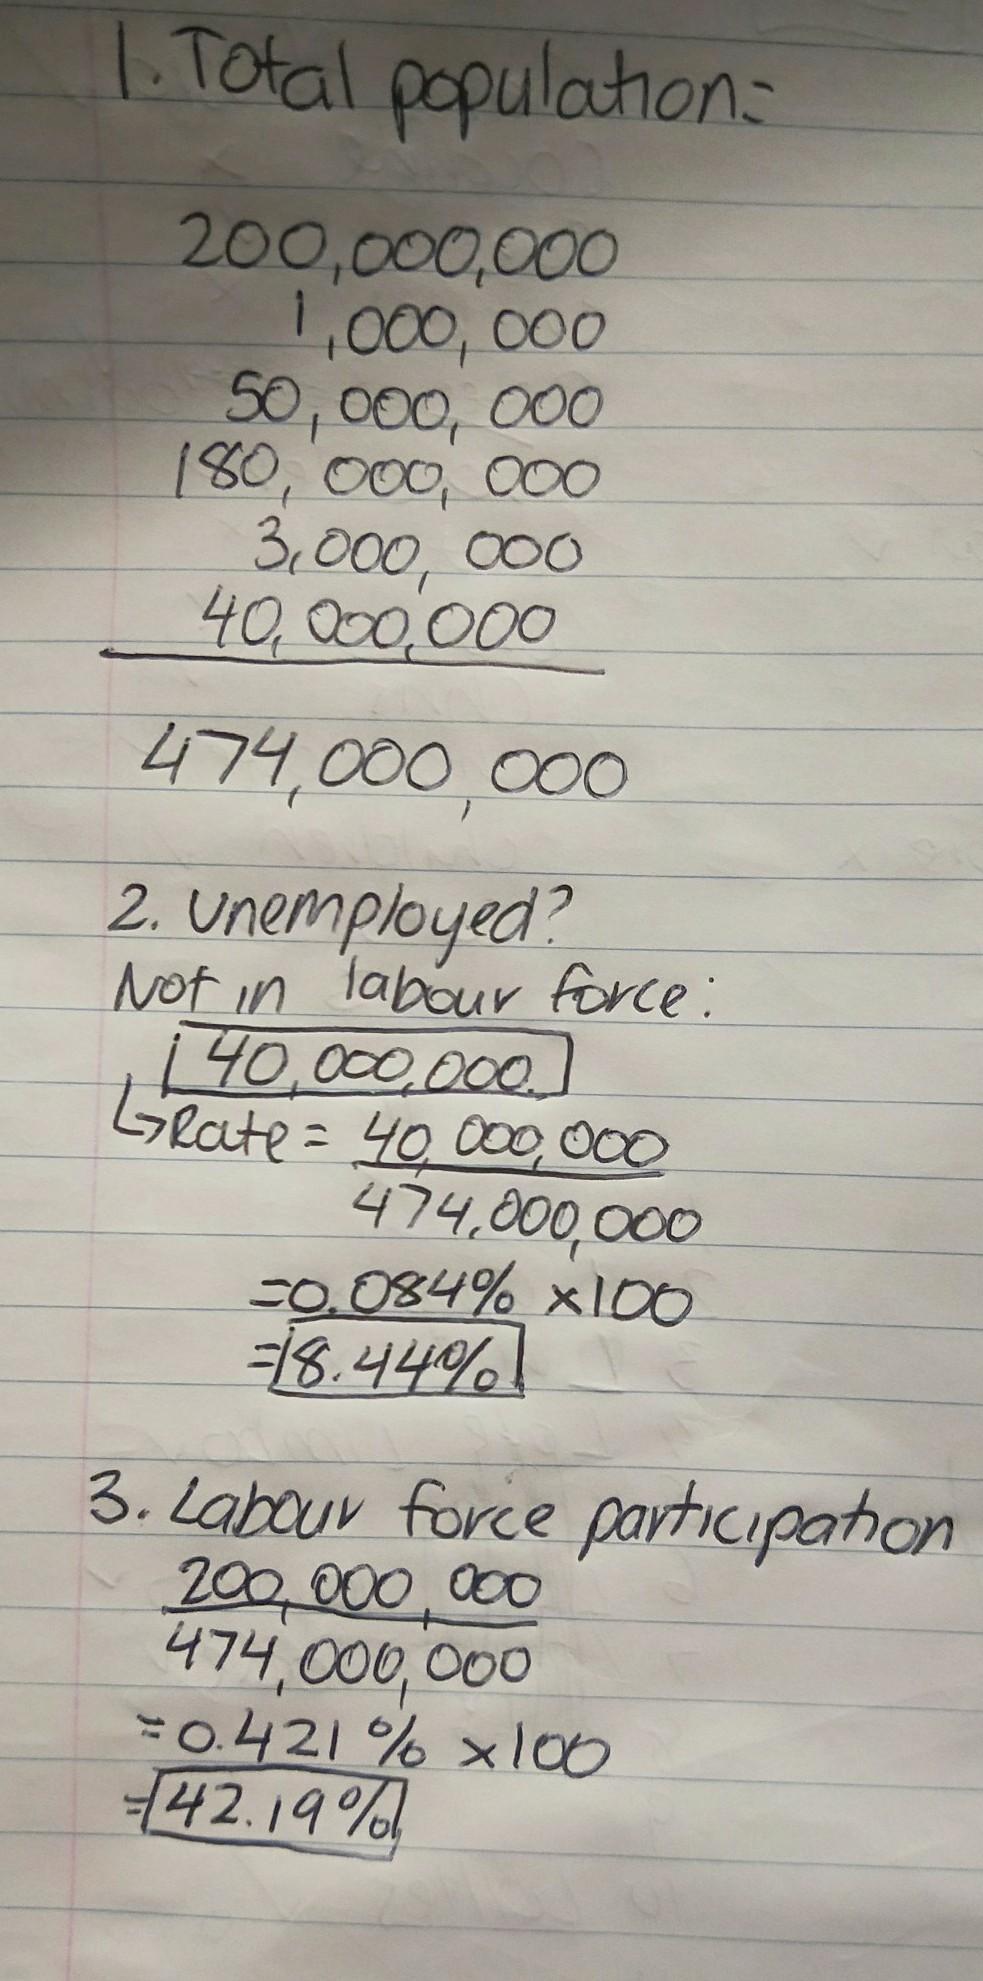 1. Total population:
200,000,000
1,000,000
50,000,000
180,000,000
3,000,000
40,000,000
474,000,000
2. Unemployed?
Not in labour force:
40,000,000.
↳Rate = 40,000,000
474,000,000
=0.084% ×100
=8.44%
3. Labour force participation
200,000,000
474,000,000
=0.421% ×100
=42.19%